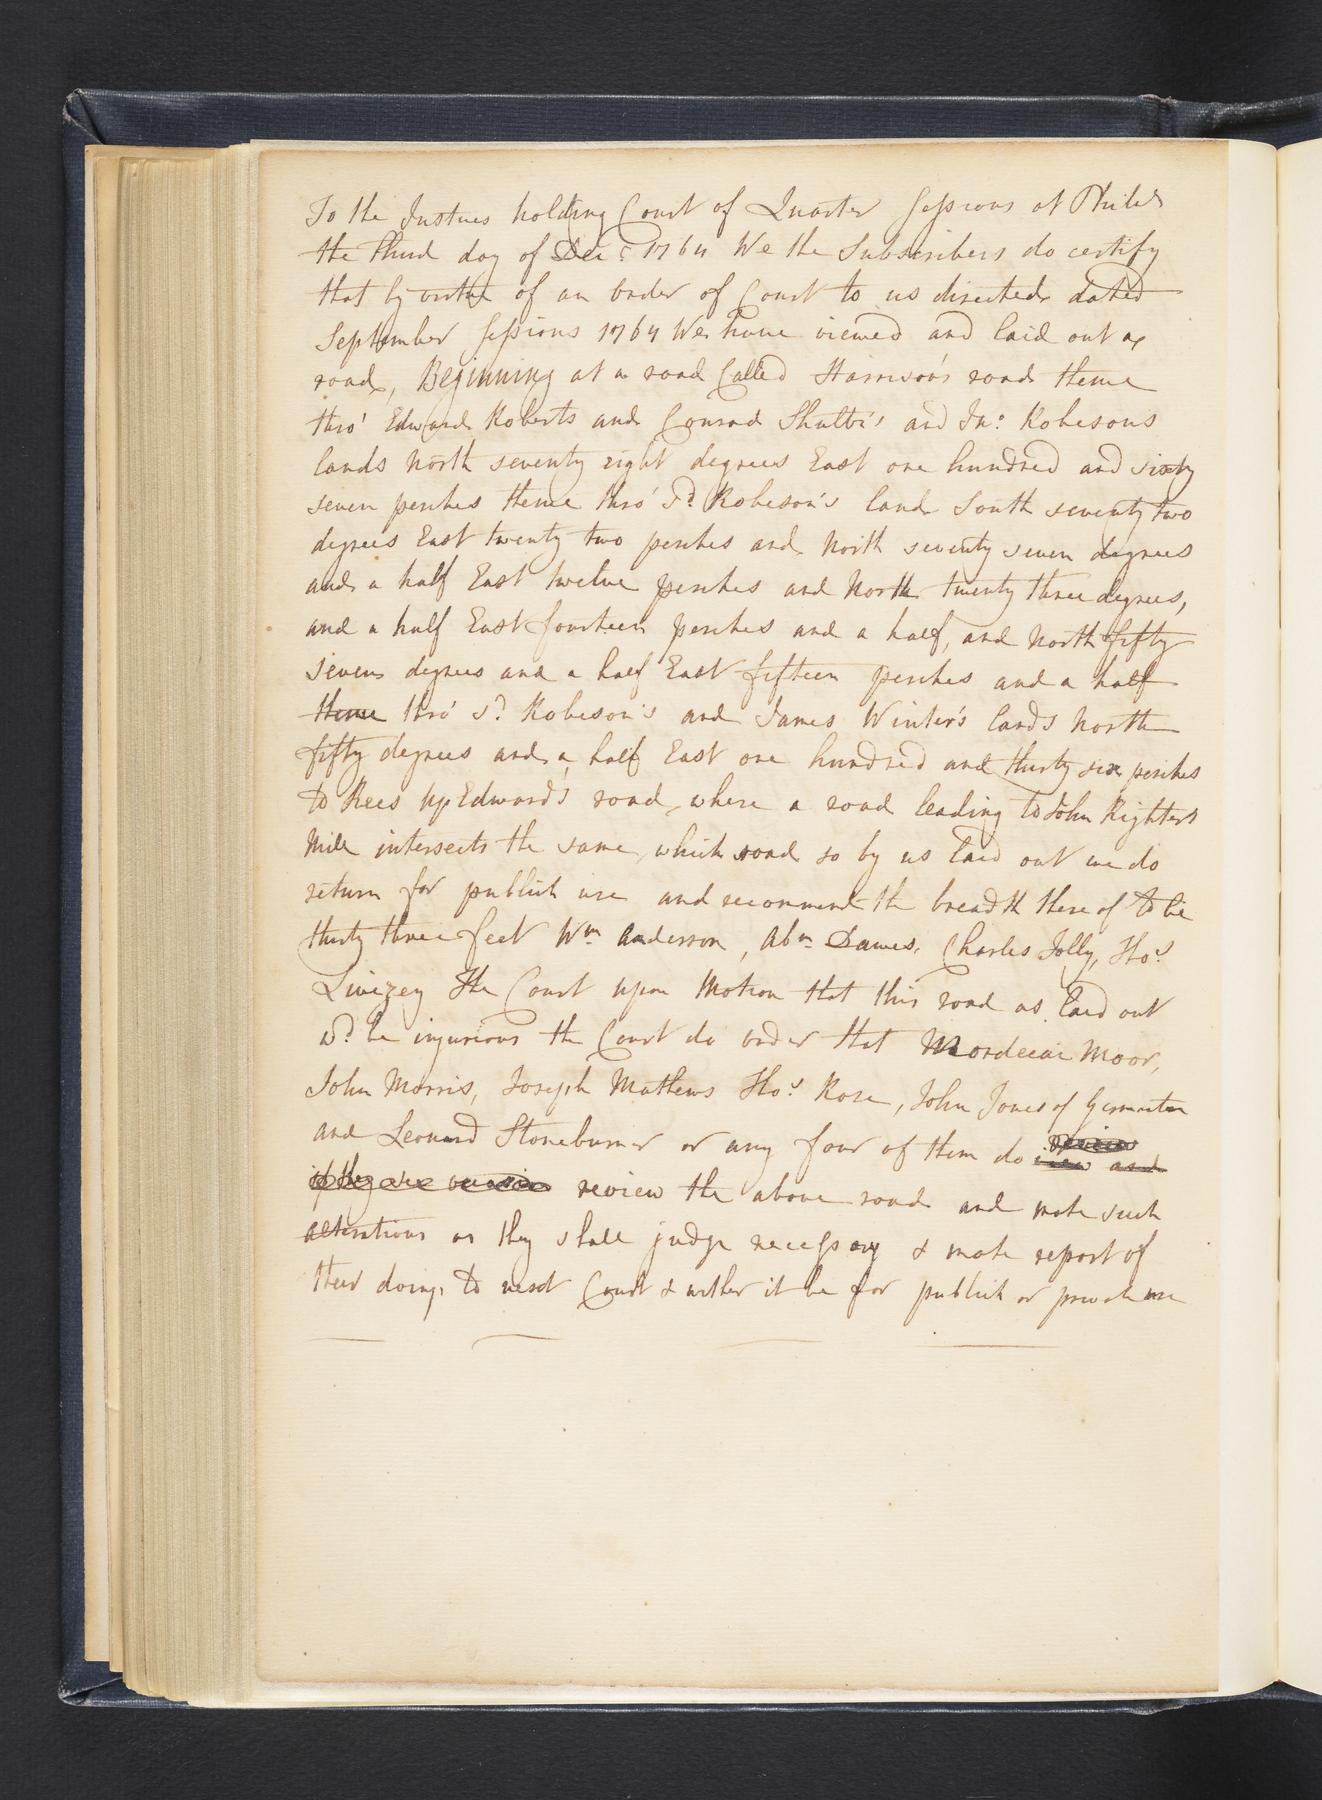 To the Justices holding Court of Quarter Sessions at Philad
the third day of Decr 1764 We the Subscribers do certify
that by virtue of an order of Court to us directed dated
September Sessions 1764 We have viewed and laid out a
road, Beginning at a road Called Harrison's road thence
thro' Edward Roberts and Conrad Shultz's and Jno: Robesons
lands North seventy eight degrees East one hundred and sixty
seven perches thence thro' sd. Robeson's land South seventy two
degrees East twenty two perches and North seventy seven degrees
and a half East twelve perches and North twenty three degrees,
and a half East fourteen perches and a half, and North fifty
seven degrees and a half East fifteen perches and a half
thence thro' sd. Robeson's and James Winter's lands North
fifty degrees and a half East one hundred and thirty six perches
to Rees Edward's road, where a road leading to John Righters
Mill intersects the same, which road so by us laid out we do
return for publick use and recommend the breadth there of to be
thirty three feet Wm Anderson, Abm Dawes, Charles Jolly, Thos
Livezey The Court upon Motion that this road as laid out
wd. be injurious the Court do order that Mordecai Moor,
John Morris, Joseph Mathews Thos. Rose, John Jones of Germanton
and Leonard Stoneburner or any four of them do
review the above road and make such
alterations as they shall judge necessary & make report of
their doings to next Court & wether it be for publick or private use